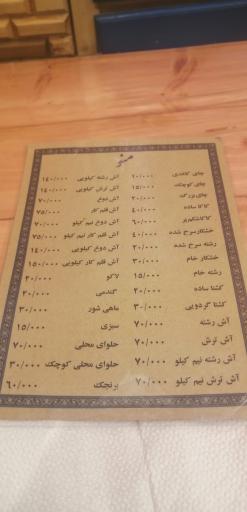 منو
چای کاغذی ۱۰/۰۰۰
چای کوچک ۱۵/۰۰۰
چای بزرگ ۲۰/۰۰۰
کاکا ساده ۴۰/۰۰۰
کاکاشکم پر ۶۰/۰۰۰
خشکار سرخ شده ۴۰/۰۰۰
رشته سرخ شده ۲۰/۰۰۰
خشکار خام ۳۰/۰۰۰
رشته خام ۱۵/۰۰۰
کشتا ساده ۲۰/۰۰۰
کشتا گردویی ۳۰/۰۰۰
آش رشته ۷۰/۰۰۰
آش ترش ۷۰/۰۰۰
آش رشته نیم کیلو ۷۰/۰۰۰
آش ترش نیم کیلو ۷۰/۰۰۰
آش رشته کیلویی ۱۴۰/۰۰۰
آش ترش کیلویی ۱۴۰/۰۰۰
آش دوغ ۷۰/۰۰۰
آش قلم کار ۷۵/۰۰۰
آش دوغ نیم کیلو ۷۰/۰۰۰
آش قلم کار نیم کیلو ۷۵/۰۰۰
آش دوغ کیلویی ۱۴۰/۰۰۰
آش قلم کار کیلویی ۱۵۰/۰۰۰
لاکو ۲۰/۰۰۰
گندمی ۲۰/۰۰۰
ماهی شور ۳۰/۰۰۰
سبزی ۱۵/۰۰۰
حلوای محلی ۷۰/۰۰۰
حلوای محلی کوچک ۳۰/۰۰۰
برنجک ۶۰/۰۰۰